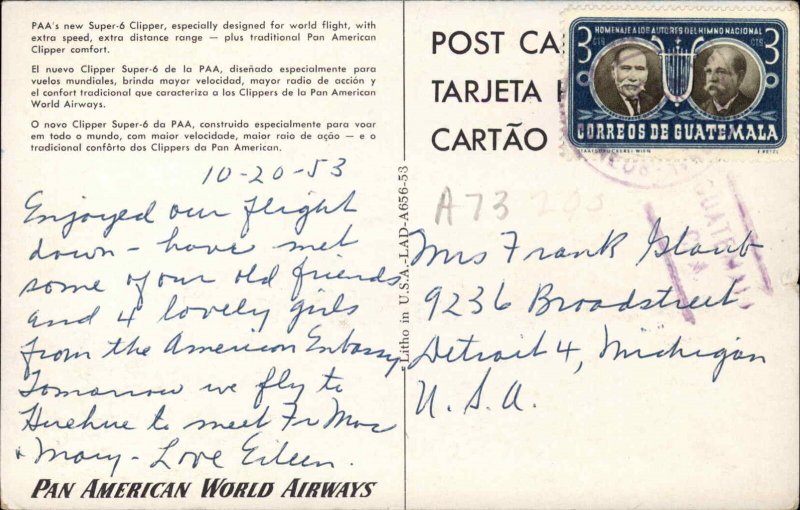 PAA's new Super-6 Clipper, especially designed for world flight, with
extra speed, extra distance range — plus traditional Pan American
Clipper comfort.
El nuevo Clipper Super-6 de la PAA, diseñado especialmente para
vuelos mundiales, brinda mayor velocidad, mayor radio de acción y
el confort tradicional que caracteriza a los Clippers de la Pan American
World Airways.
O novo Clipper Super-6 da PAA, construido especialmente para voar
em todo o mundo, com maior velocidade, maior raio de ação — e o
tradicional confôrto dos Clippers da Pan American.
10-20-53
Enjoyed our flight
down - have met
some of our old friends
and 4 lovely girls
from the American Embassy
Tomorrow we fly to
Huehue to meet Fr Mac
+ Mary - Love Eileen.
PAN AMERICAN WORLD AIRWAYS
Litho in U.S.A.-LAD-A656-53
POST CA
TARJETA
CARTÃO
HOMENAJE A LOS AUTORES DEL HIMNO NACIONAL
3 CTS
CTS 3
CORREOS DE GUATEMALA
A73
Mrs Frank Glaub
9236 Broadstreet
Detroit 4, Michigan
U.S.A.